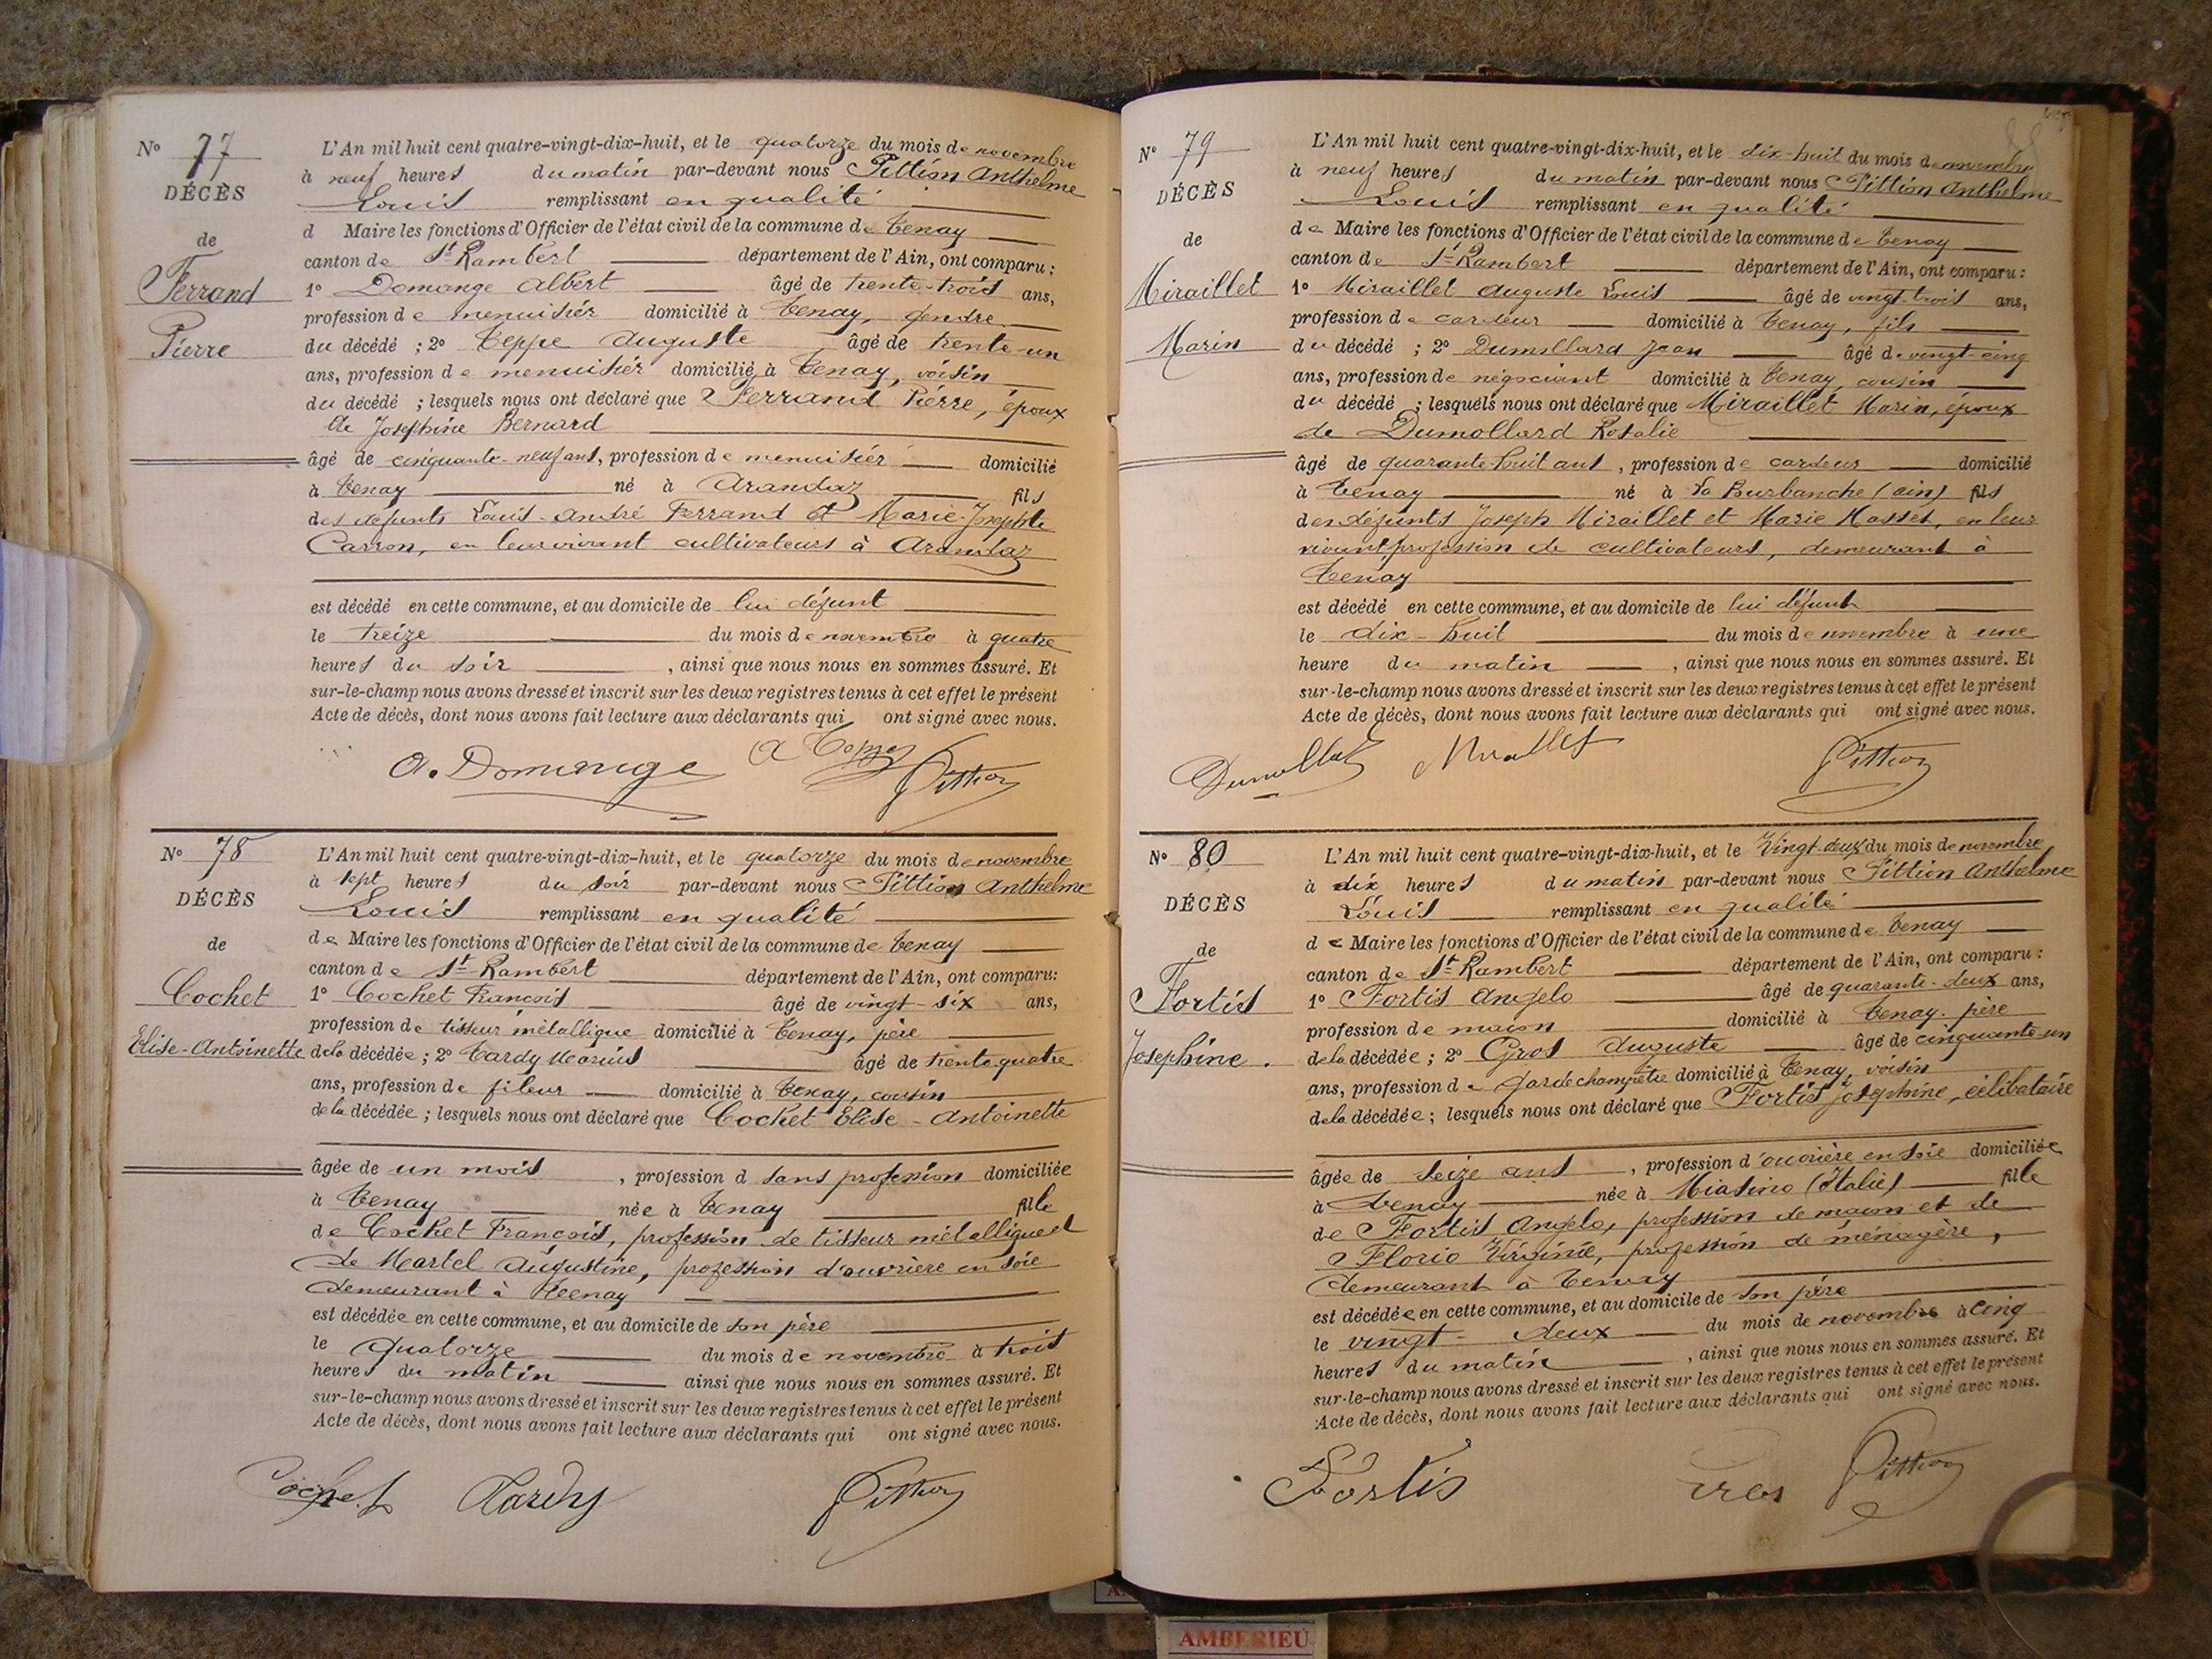 N° 77
DÉCÈS
de
Ferrand
Pierre
L'An mil huit cent quatre-vingt-dix-huit, et le quatorze du mois de novembre
à neuf heures du matin par-devant nous Pittion Anthelme
Louis remplissant en qualité
d Maire les fonctions d'Officier de l'état civil de la commune de Tenay
canton de St Rambert département de l'Ain, ont comparu :
1° Domange Albert âgé de trente-trois ans,
profession de menuisier domicilié à Tenay, gendre
du décédé ; 2° Teppe Auguste âgé de trente-un
ans, profession de menuisier domicilié à Tenay, voisin
du décédé ; lesquels nous ont déclaré que Ferrand Pierre, époux
de Josephine Bernard
âgé de cinquante-neuf ans, profession de menuisier domicilié
à Tenay né à Arandaz fils
des défunts Louis-André Ferrand et Marie-Josephte
Carron, en leur vivant cultivateurs à Arandaz
est décédé en cette commune, et au domicile de lui défunt
le treize du mois de novembre à quatre
heures du soir , ainsi que nous nous en sommes assuré. Et
sur-le-champ nous avons dressé et inscrit sur les deux registres tenus à cet effet le présent
Acte de décès, dont nous avons fait lecture aux déclarants qui ont signé avec nous.
A. Domenge A Teppe Pittion
N° 78
DÉCÈS
de
Cochet
Elise-Antoinette
L'An mil huit cent quatre-vingt-dix-huit, et le quatorze du mois de novembre
à sept heures du soir par-devant nous Pittion Anthelme
Louis remplissant en qualité
de Maire les fonctions d'Officier de l'état civil de la commune de Tenay
canton de St Rambert département de l'Ain, ont comparu:
1° Cochet François âgé de vingt-six ans,
profession de tisseur métallique domicilié à Tenay, père
de la décédée ; 2° Tardy Marius âgé de trente quatre
ans, profession de fileur domicilié à Tenay, cousin
de la décédée ; lesquels nous ont déclaré que Cochet Elise-Antoinette
âgée de un mois , profession d sans profession domiciliée
à Tenay née à Tenay fille
de Cochet François, profession de tisseur métallique et
de Martel Augustine, profession d'ouvrière en soie
demeurant à Tenay
est décédée en cette commune, et au domicile de son père
le quatorze du mois de novembre à trois
heures du matin ainsi que nous nous en sommes assuré. Et
sur-le-champ nous avons dressé et inscrit sur les deux registres tenus à cet effet le présent
Acte de décès, dont nous avons fait lecture aux déclarants qui ont signé avec nous.
Cochet Tardy Pittion
N° 79
DÉCÈS
de
Miraillet
Marin
L'An mil huit cent quatre-vingt-dix-huit, et le dix-huit du mois de novembre
à neuf heures du matin par-devant nous Pittion Anthelme
Louis remplissant en qualité
de Maire les fonctions d'Officier de l'état civil de la commune de Tenay
canton de St Rambert département de l'Ain, ont comparu :
1° Miraillet Auguste Louis âgé de vingt-trois ans,
profession de cardeur domicilié à Tenay, fils
du décédé ; 2° Dumollard Jean âgé de vingt-cinq
ans, profession de négociant domicilié à Tenay, cousin
du décédé ; lesquels nous ont déclaré que Miraillet Marin, époux
de Dumollard Rosalie
âgé de quarante huit ans , profession de cardeur domicilié
à Tenay né à La Burbanche (Ain) fils
des défunts Joseph Miraillet et Marie Masset, en leur
vivant profession de cultivateurs, demeurant à
Tenay
est décédé en cette commune, et au domicile de lui défunt
le dix-huit du mois de novembre à une
heure du matin , ainsi que nous nous en sommes assuré. Et
sur-le-champ nous avons dressé et inscrit sur les deux registres tenus à cet effet le présent
Acte de décès, dont nous avons fait lecture aux déclarants qui ont signé avec nous.
Dumollard Miraillet Pittion
N° 80
DÉCÈS
de
Fortis
Josephine.
L'An mil huit cent quatre-vingt-dix-huit, et le Vingt-deux du mois de novembre
à dix heures du matin par-devant nous Pittion Anthelme
Louis remplissant en qualité
de Maire les fonctions d'Officier de l'état civil de la commune de Tenay
canton de St Rambert département de l'Ain, ont comparu :
1° Fortis Angelo âgé de quarante-deux ans,
profession de maçon domicilié à Tenay. père
de la décédée ; 2° Gros Auguste âgé de cinquante-un
ans, profession de garde champêtre domicilié à Tenay, voisin
de la décédée ; lesquels nous ont déclaré que Fortis Josephine, célibataire
âgée de seize ans , profession d'ouvrière en soie domiciliée
à Tenay née à Miasino (Italie) fille
de Fortis Angelo, profession de maçon et de
Florio Virginie, profession de ménagère,
demeurant à Tenay
est décédée en cette commune, et au domicile de son père
le vingt-deux du mois de novembre à cinq
heures du matin , ainsi que nous nous en sommes assuré. Et
sur-le-champ nous avons dressé et inscrit sur les deux registres tenus à cet effet le présent
Acte de décès, dont nous avons fait lecture aux déclarants qui ont signé avec nous.
Fortis Gros Pittion
AMBERIEU